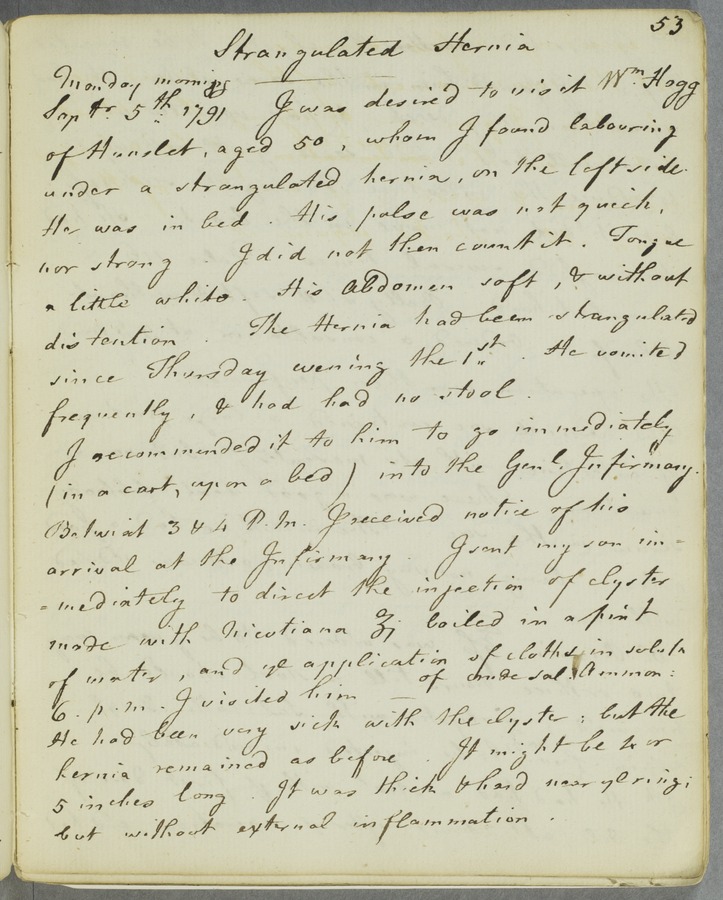 53
Strangulated Hernia
Monday morning
Septr. 5th 1791 I was desired to visit Wm. Hogg
of Hunslet, aged 50, whom I found labouring
under a strangulated hernia, on the left side.
He was in bed. His pulse was not quick,
nor strong. I did not then count it. Tongue
a little white. His Abdomen soft, & without
distention. The Hernia had been strangulated
since Thursday evening the 1st. He vomited
frequently, & had had no stool.
I recommended it to him to go immediately
(in a cart, upon a bed) into the Genl. Infirmary.
Betwixt 3 & 4 P.M. I received notice of his
arrival at the Infirmary. I sent my son im=
=mediately to direct the injection of clyster
made with Nicotiana ʒj boiled in a pint
of water, and ye application of cloths in solutn
of crude sal. Ammon:
6. p.m. I visited him —
He had been very sick with the clyster; but the
hernia remained as before. It might be 4 or
5 inches long. It was thick & hard near ye ring;
but without external inflammation.